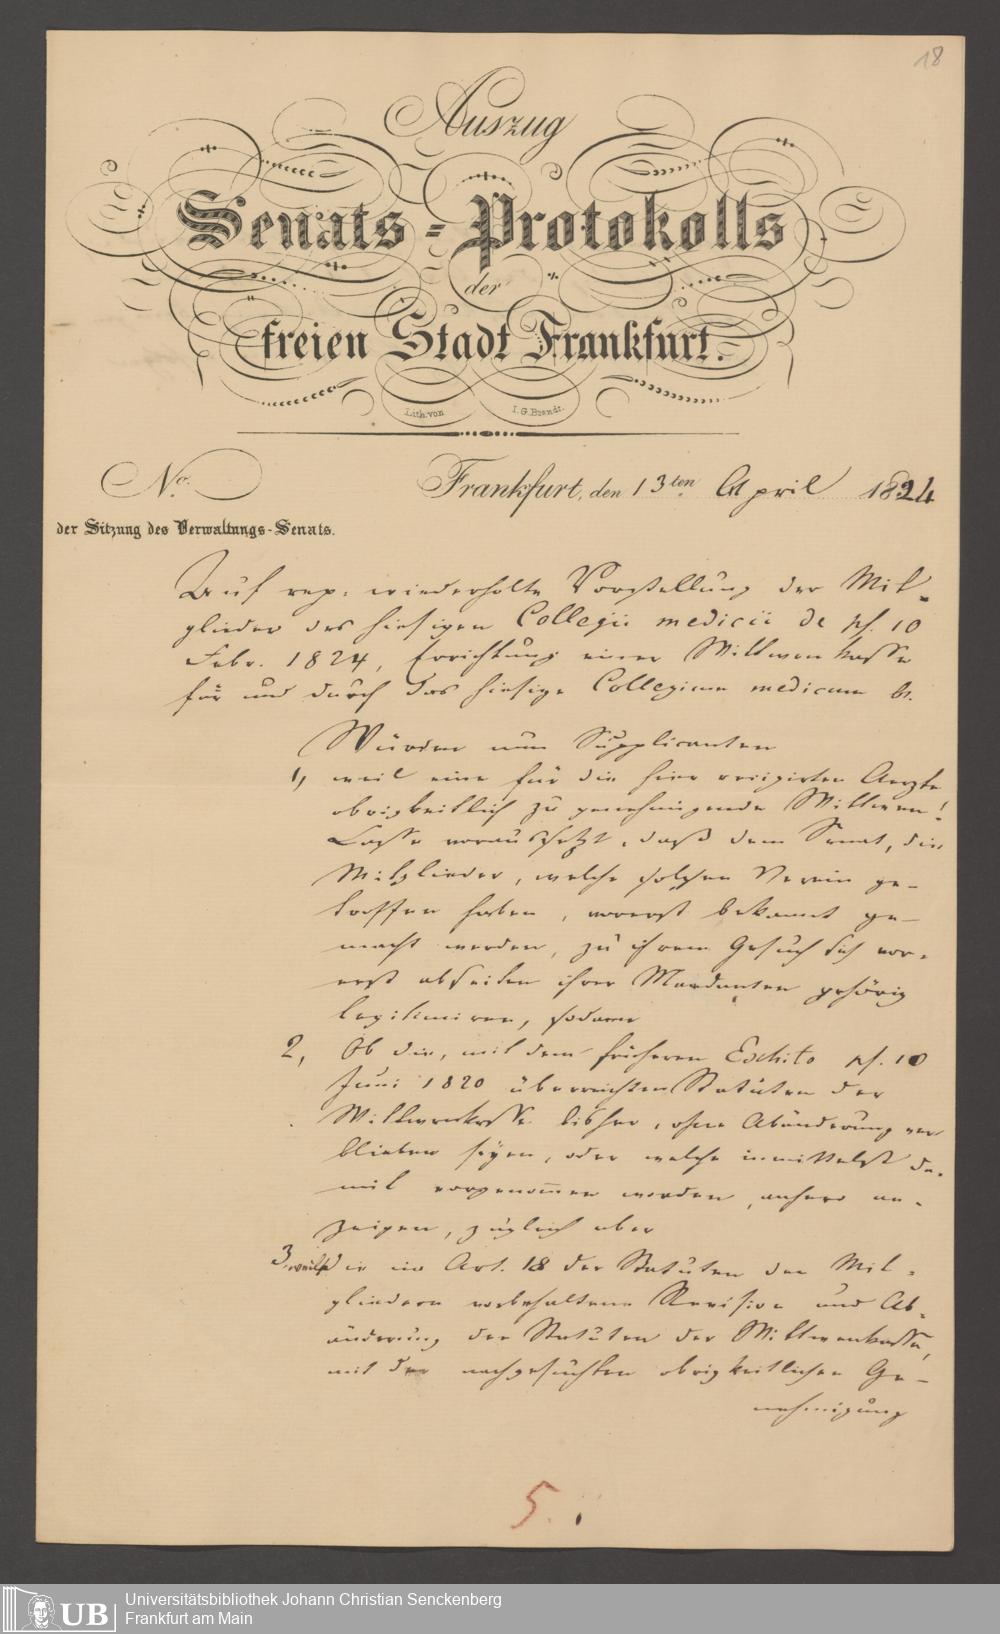 18
Auszug
Senats-Protokolls
der
freien Stadt Frankfurt.
Lith. von I. G. Brandt.
No.
Frankfurt, den 13ten April 1824
der Sitzung des Verwaltungs-Senats.
Auf rep. wiederholte Vorstellung der Mit-
glieder des hiesigen Collegii medicii de ps. 10
Febr. 1824, Errichtung einer Wittwen Kasse
für und durch das hiesige Collegium medicum bt.
Würden nun Supplicanten
1, weil eine für die hier recipirten Aerzte
obrigkeitlich zu genehmigende Wittwen-
Casse voraussetzt, daß dem Senat, die
Mitglieder, welche solchen Verein ge-
troffen haben, vorerst bekannt ge-
macht werden, zu ihrem Gesuch sich vor-
erst abseiten ihrer Mandanten gehörig
legitimiren, sodann
2, Ob die, mit dem früheren Exhibito ps. 10
Juni 1820 überreichten Statuten der
Wittwenkasse bisher, ohne Abänderung ver
blieben seyen, oder welche inmittelst da-
mit vorgenommen worden, anhero an-
zeigen, zugleich aber
3, weil die im Art. 18 der Statuten den Mit-
gliedern vorbehaltene Revision und Ab-
änderung der Statuten der Wittwenkasse,
mit der nachgesuchten obrigkeitlichen Ge-
nehmigung
5.
UB
Universitätsbibliothek Johann Christian Senckenberg
Frankfurt am Main